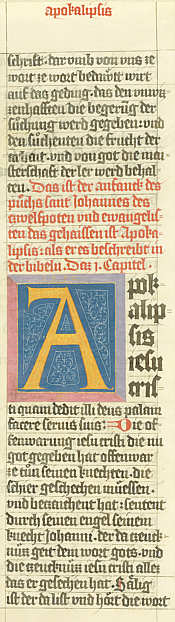 apokalipsis
schrift · dar umb von uns ze
wort ze wort bedeütt wirt
auf das geding · das den
die begerüg der
süchung werd gegeben · und
den süchenten die frucht der
und von got die mai
sterschaft der ler werd behal
ten · Das ist der anfanck des
püchs sant Johannes des
zwelfpoten und ewangelis
ten das gehaissen ist Apoka
lipsis : als er es beschreibt in
der bibeln · Daz j · Capitel ·
Apok
alip
sis
iesu
crist
ti quam dedit illi deus palam
facere servis suis : Die of
fenwarung iesu cristi die im
got gegeben hat offenwar
ze tün seinen knechten · die
schier geschechen müessen ·
und bezaichent hat : sentent
durch seinen engel seinem
knecht Johanni · der da
gent dem wort gots · und
die iesu cristi alles
das er gesechen hat · Sälig
ist der da list und hört die wort